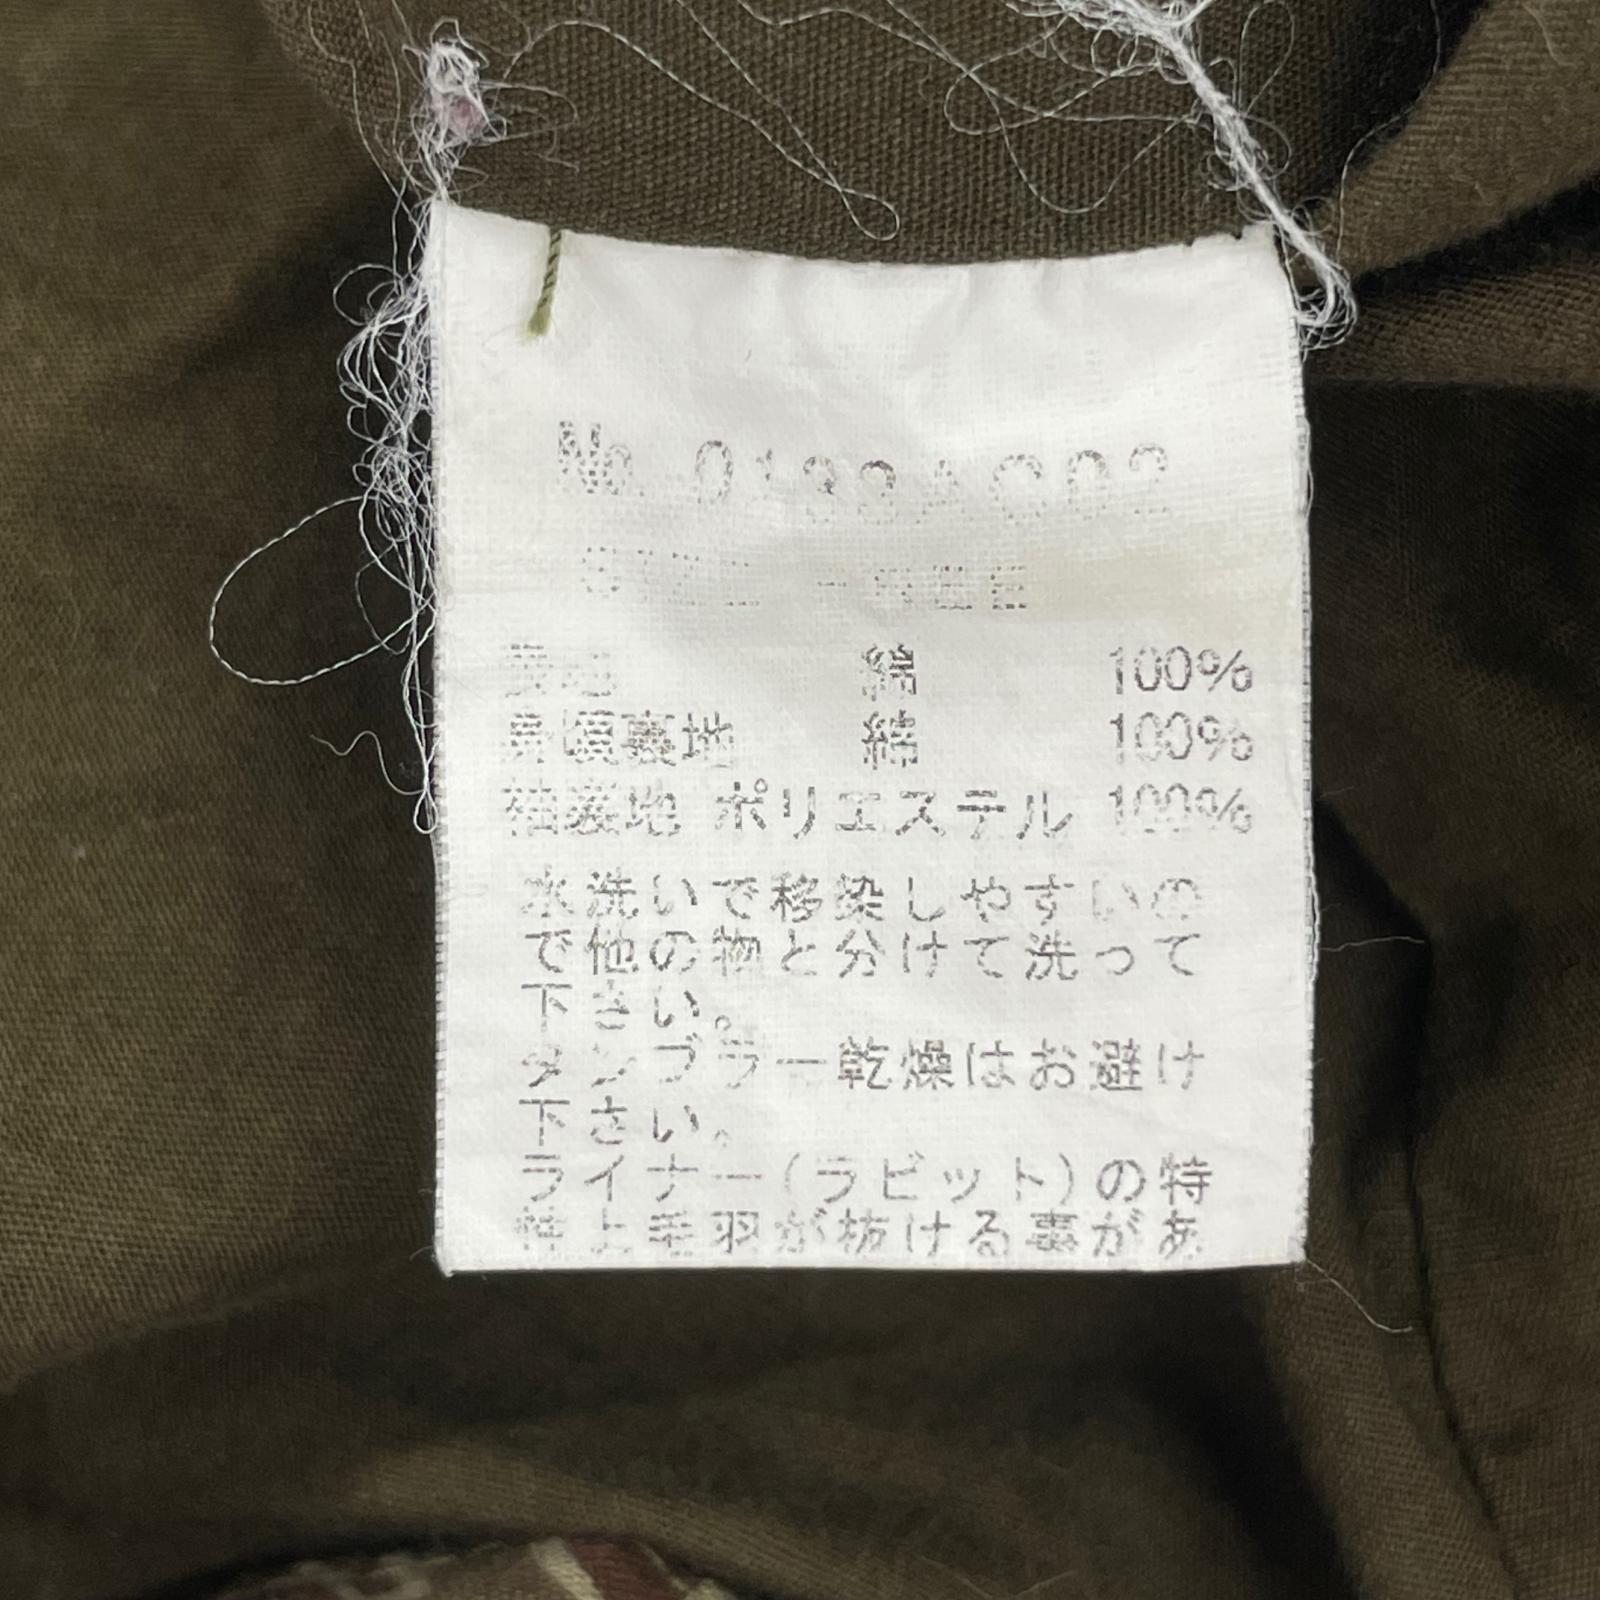 No.
SIZE FREE
表地 綿 100%
身頃裏地 綿 100%
袖裏地 ポリエステル 100%
水洗いで移染しやすいの
で他の物と分けて洗って
下さい。
タンブラー乾燥はお避け
下さい。
ライナー(ラビット)の特
性上毛羽が抜ける事があ